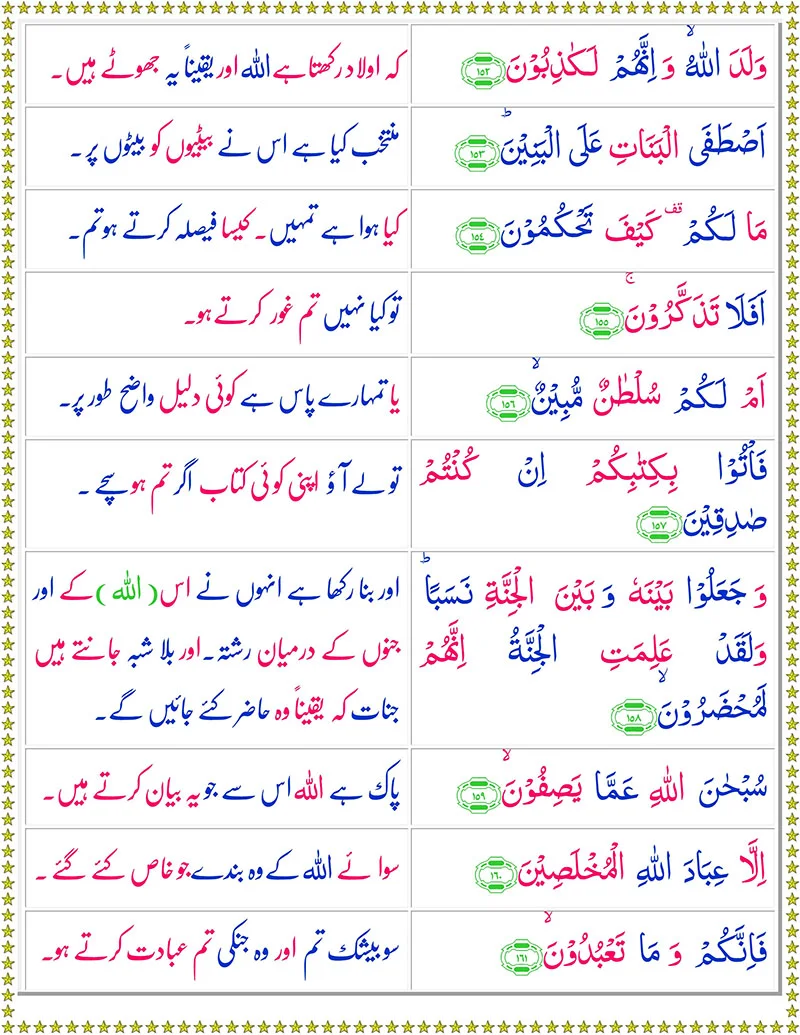 وَلَدَ اللّٰهُ ۙ وَ اِنَّهُمْ لَكٰذِبُوْنَ ﴿۱۵۲﴾
کہ اولاد رکھتا ہے اللہ اور یقیناً یہ جھوٹے ہیں۔
اَصْطَفَى الْبَنَاتِ عَلَى الْبَنِيْنَ ؕ ﴿۱۵۳﴾
منتخب کیا ہے اس نے بیٹیوں کو بیٹوں پر۔
مَا لَكُمْ ۫ كَيْفَ تَحْكُمُوْنَ ﴿۱۵۴﴾
کیا ہوا ہے تمہیں۔ کیسا فیصلہ کرتے ہو تم۔
اَفَلَا تَذَكَّرُوْنَ ۚ ﴿۱۵۵﴾
تو کیا نہیں تم غور کرتے ہو۔
اَمْ لَكُمْ سُلْطٰنٌ مُّبِيْنٌ ۙ ﴿۱۵۶﴾
یا تمہارے پاس ہے کوئی دلیل واضح طور پر۔
فَاْتُوْا بِكِتٰبِكُمْ اِنْ كُنْتُمْ
صٰدِقِيْنَ ﴿۱۵۷﴾
تو لے آؤ اپنی کوئی کتاب اگر تم ہو سچے۔
وَ جَعَلُوْا بَيْنَهٗ وَ بَيْنَ الْجِنَّةِ نَسَبًا ؕ
وَلَقَدْ عَلِمَتِ الْجِنَّةُ اِنَّهُمْ
لَمُحْضَرُوْنَ ۙ ﴿۱۵۸﴾
اور بنا رکھا ہے انہوں نے اس (اللہ) کے اور
جنوں کے درمیان رشتہ۔ اور بلا شبہ جانتے ہیں
جنات کہ یقیناً وہ حاضر کئے جائیں گے۔
سُبْحٰنَ اللّٰهِ عَمَّا يَصِفُوْنَ ۙ ﴿۱۵۹﴾
پاک ہے اللہ اس سے جو یہ بیان کرتے ہیں۔
اِلَّا عِبَادَ اللّٰهِ الْمُخْلَصِيْنَ ﴿۱۶۰﴾
سوائے اللہ کے وہ بندے جو خاص کئے گئے۔
فَاِنَّكُمْ وَ مَا تَعْبُدُوْنَ ۙ ﴿۱۶۱﴾
سو بیشک تم اور وہ جنکی تم عبادت کرتے ہو۔